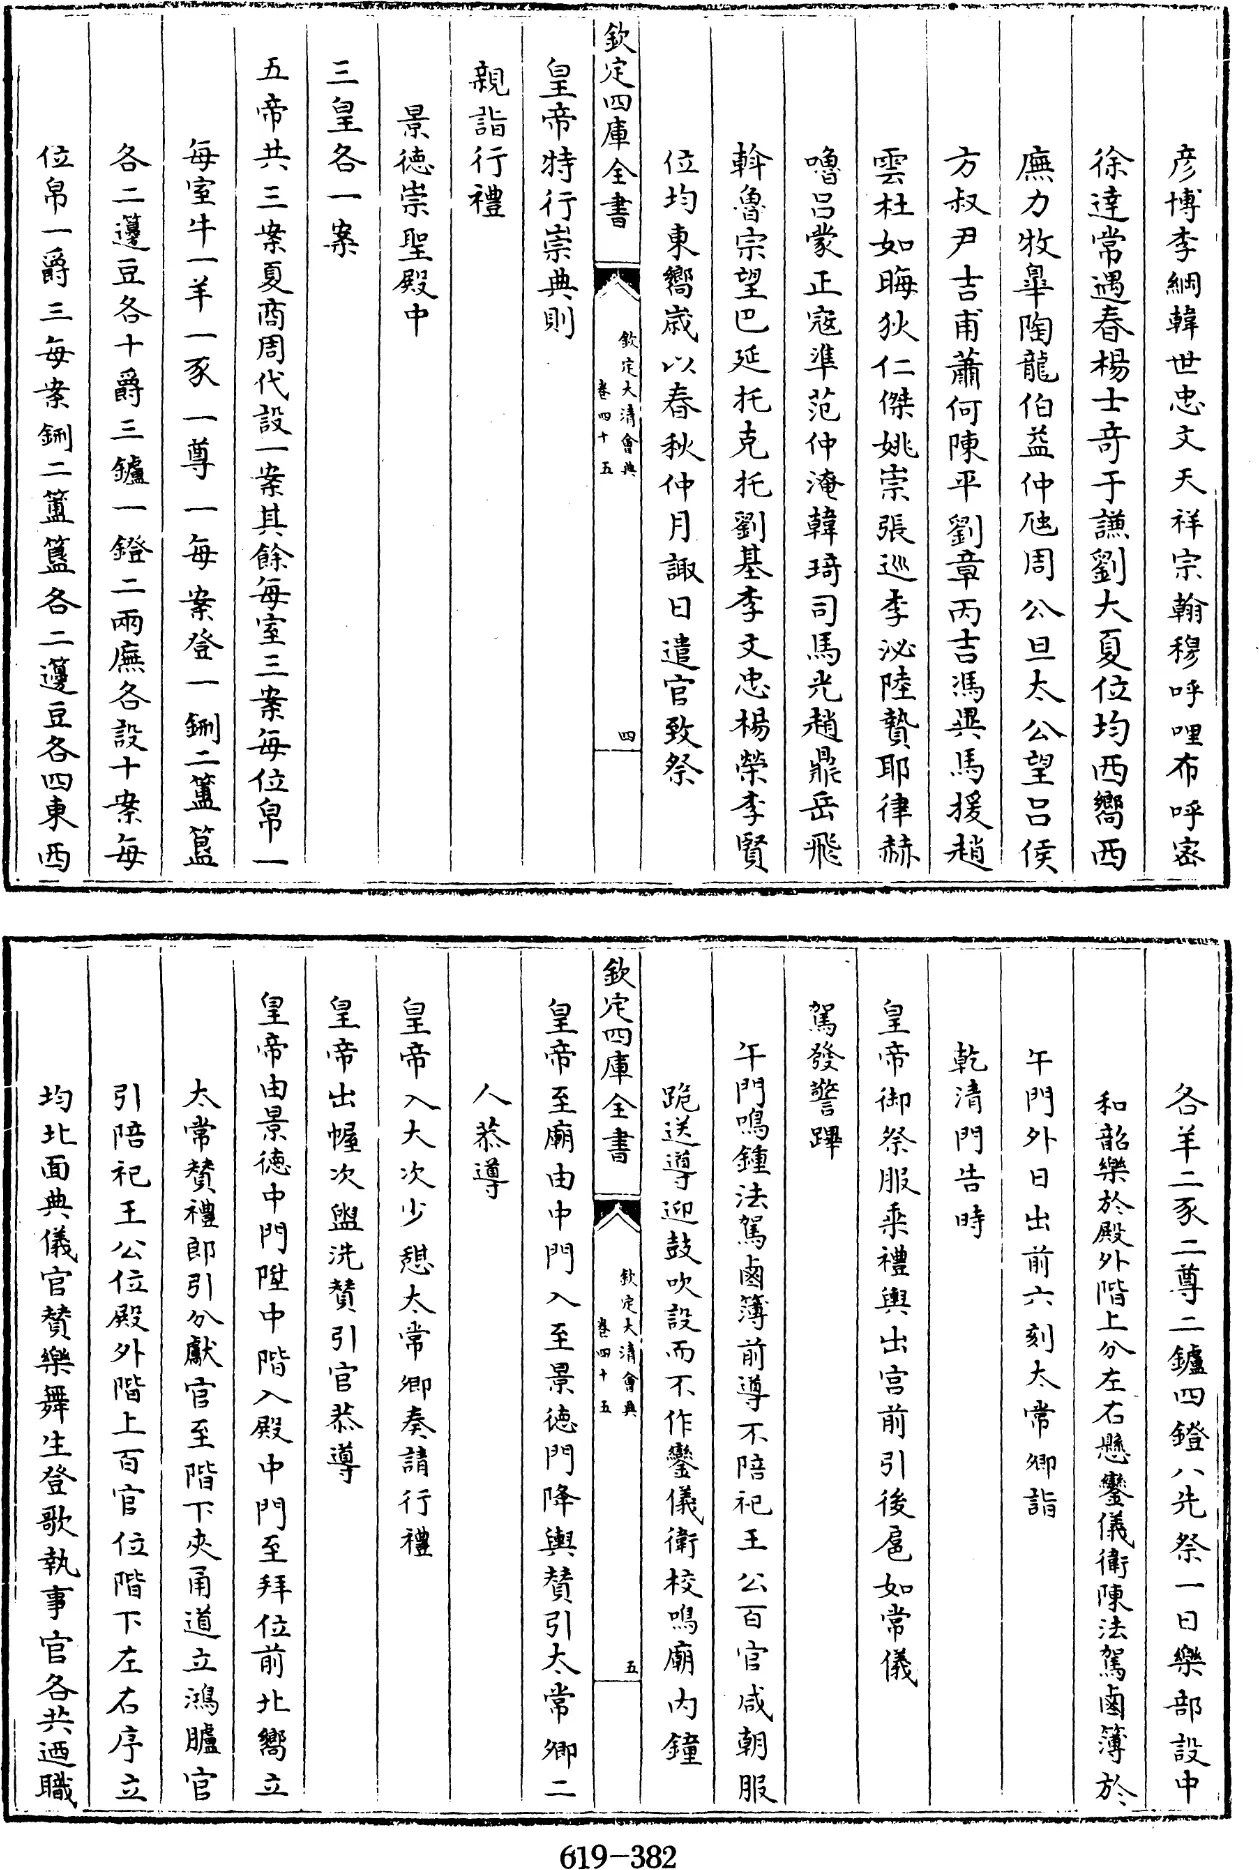 彦博李綱韓世忠文天祥宗翰穆呼哩布呼密
徐達常遇春楊士奇于謙劉大夏位均西嚮西
廡力牧臯陶龍伯益仲虺周公旦太公望吕侯
方叔尹吉甫蕭何陳平劉章丙吉馮異馬援趙
雲杜如晦狄仁傑姚崇張巡李泌陸贄耶律赫
嚕吕蒙正寇準范仲淹韓琦司馬光趙鼎岳飛
斡魯宗望巴延托克托劉基李文忠楊榮李賢
位均東嚮歲以春秋仲月諏日遣官致祭
欽定四庫全書
欽定大清會典
卷四十五
四
皇帝特行崇典則
親詣行禮
景德崇聖殿中
三皇各一案
五帝共三案夏商周代設一案其餘每室三案每位帛一
每室牛一羊一豕一尊一每案登一鉶二簠簋
各二籩豆各十爵三鑪一鐙二兩廡各設十案每
位帛一爵三每案鉶二簠簋各二籩豆各四東西
各羊二豕二尊二鑪四鐙八先祭一日樂部設中
和韶樂於殿外階上分左右懸鑾儀衛陳法駕鹵簿於
午門外日出前六刻太常卿詣
乾清門告時
皇帝御祭服乘禮輿出宫前引後扈如常儀
駕發警蹕
午門鳴鍾法駕鹵簿前導不陪祀王公百官咸朝服
跪送導迎鼓吹設而不作鑾儀衛校鳴廟内鐘
欽定四庫全書
欽定大清會典
卷四十五
五
皇帝至廟由中門入至景德門降輿贊引太常卿二
人恭導
皇帝入大次少憩太常卿奏請行禮
皇帝出幄次盥洗贊引官恭導
皇帝由景德中門陞中階入殿中門至拜位前北嚮立
太常贊禮郎引分獻官至階下夾甬道立鴻臚官
引陪祀王公位殿外階上百官位階下左右序立
均北面典儀官贊樂舞生登歌執事官各共迺職
619-382